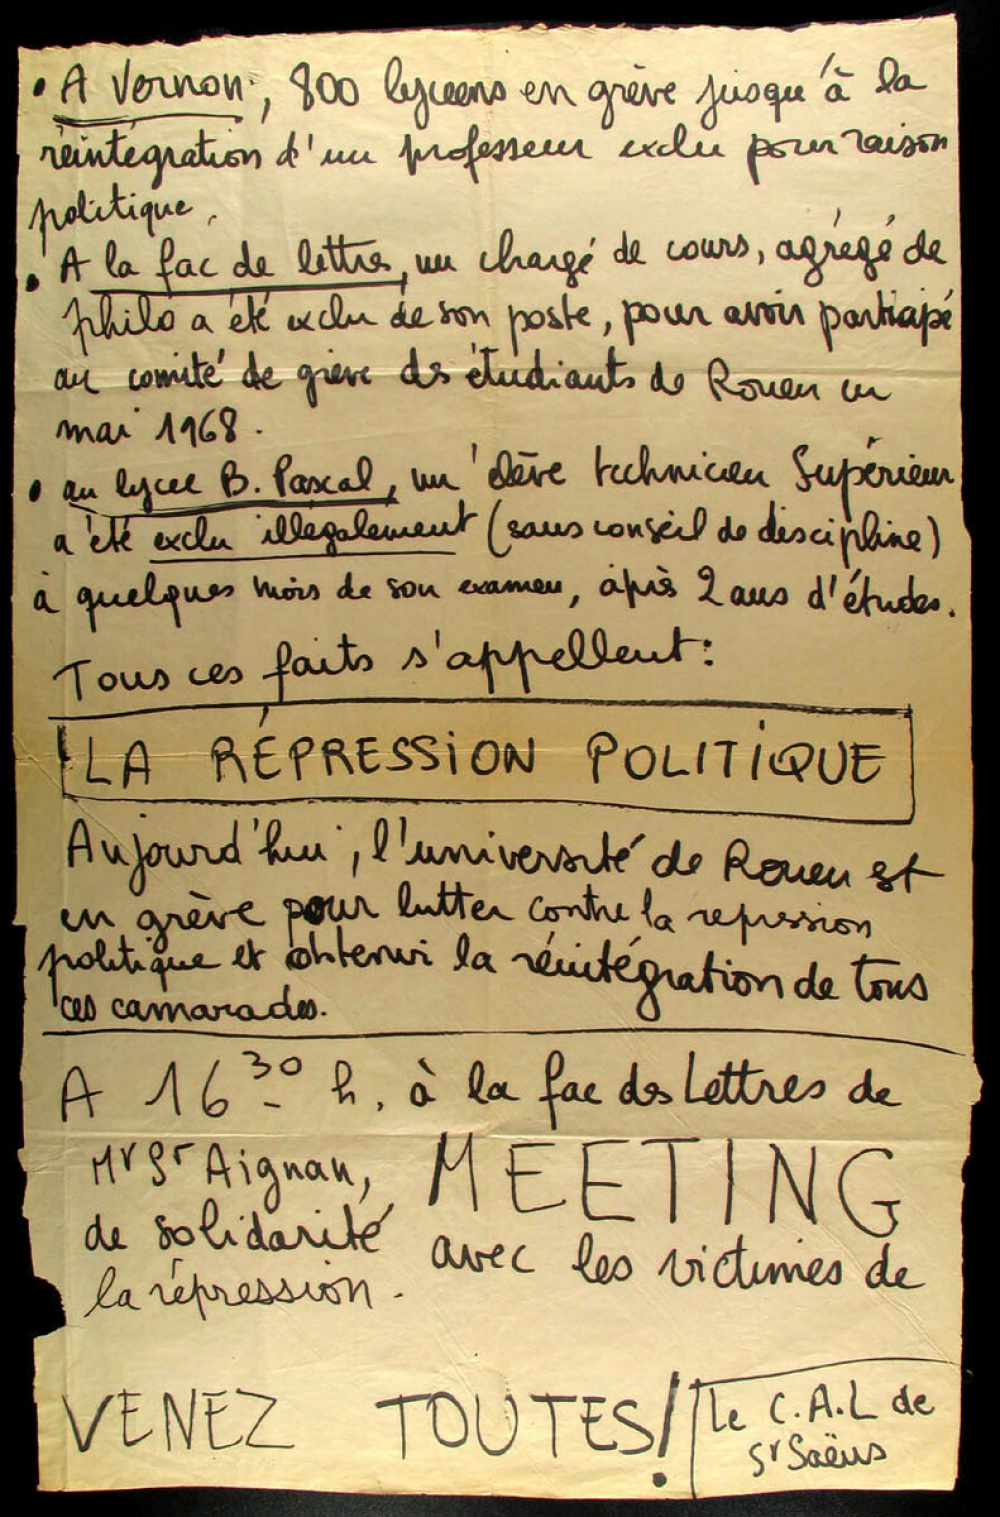 • A Vernon, 800 lyceens en grève jusqu'à la
réintégration d'un professeur exclu pour raison
politique.
• A la fac de lettres, un chargé de cours, agrégé de
philo a été exclu de son poste, pour avoir participé
au comité de grève des étudiants de Rouen en
mai 1968.
• au lycee B. Pascal, un élève technicien Supérieur
a été exclu illégalement (sans conseil de discipline)
à quelques mois de son examen, après 2 ans d'études.
Tous ces faits s'appellent:
LA RÉPRESSION POLITIQUE
Aujourd'hui, l'université de Rouen est
en grève pour lutter contre la repression
politique et obtenir la réintégration de tous
ces camarades.
A 16 30 h. à la fac des Lettres de
Mt St Aignan, MEETING
de solidarité avec les victimes de
la répression.
VENEZ TOUTES!
Le C.A.L de
St Saëns